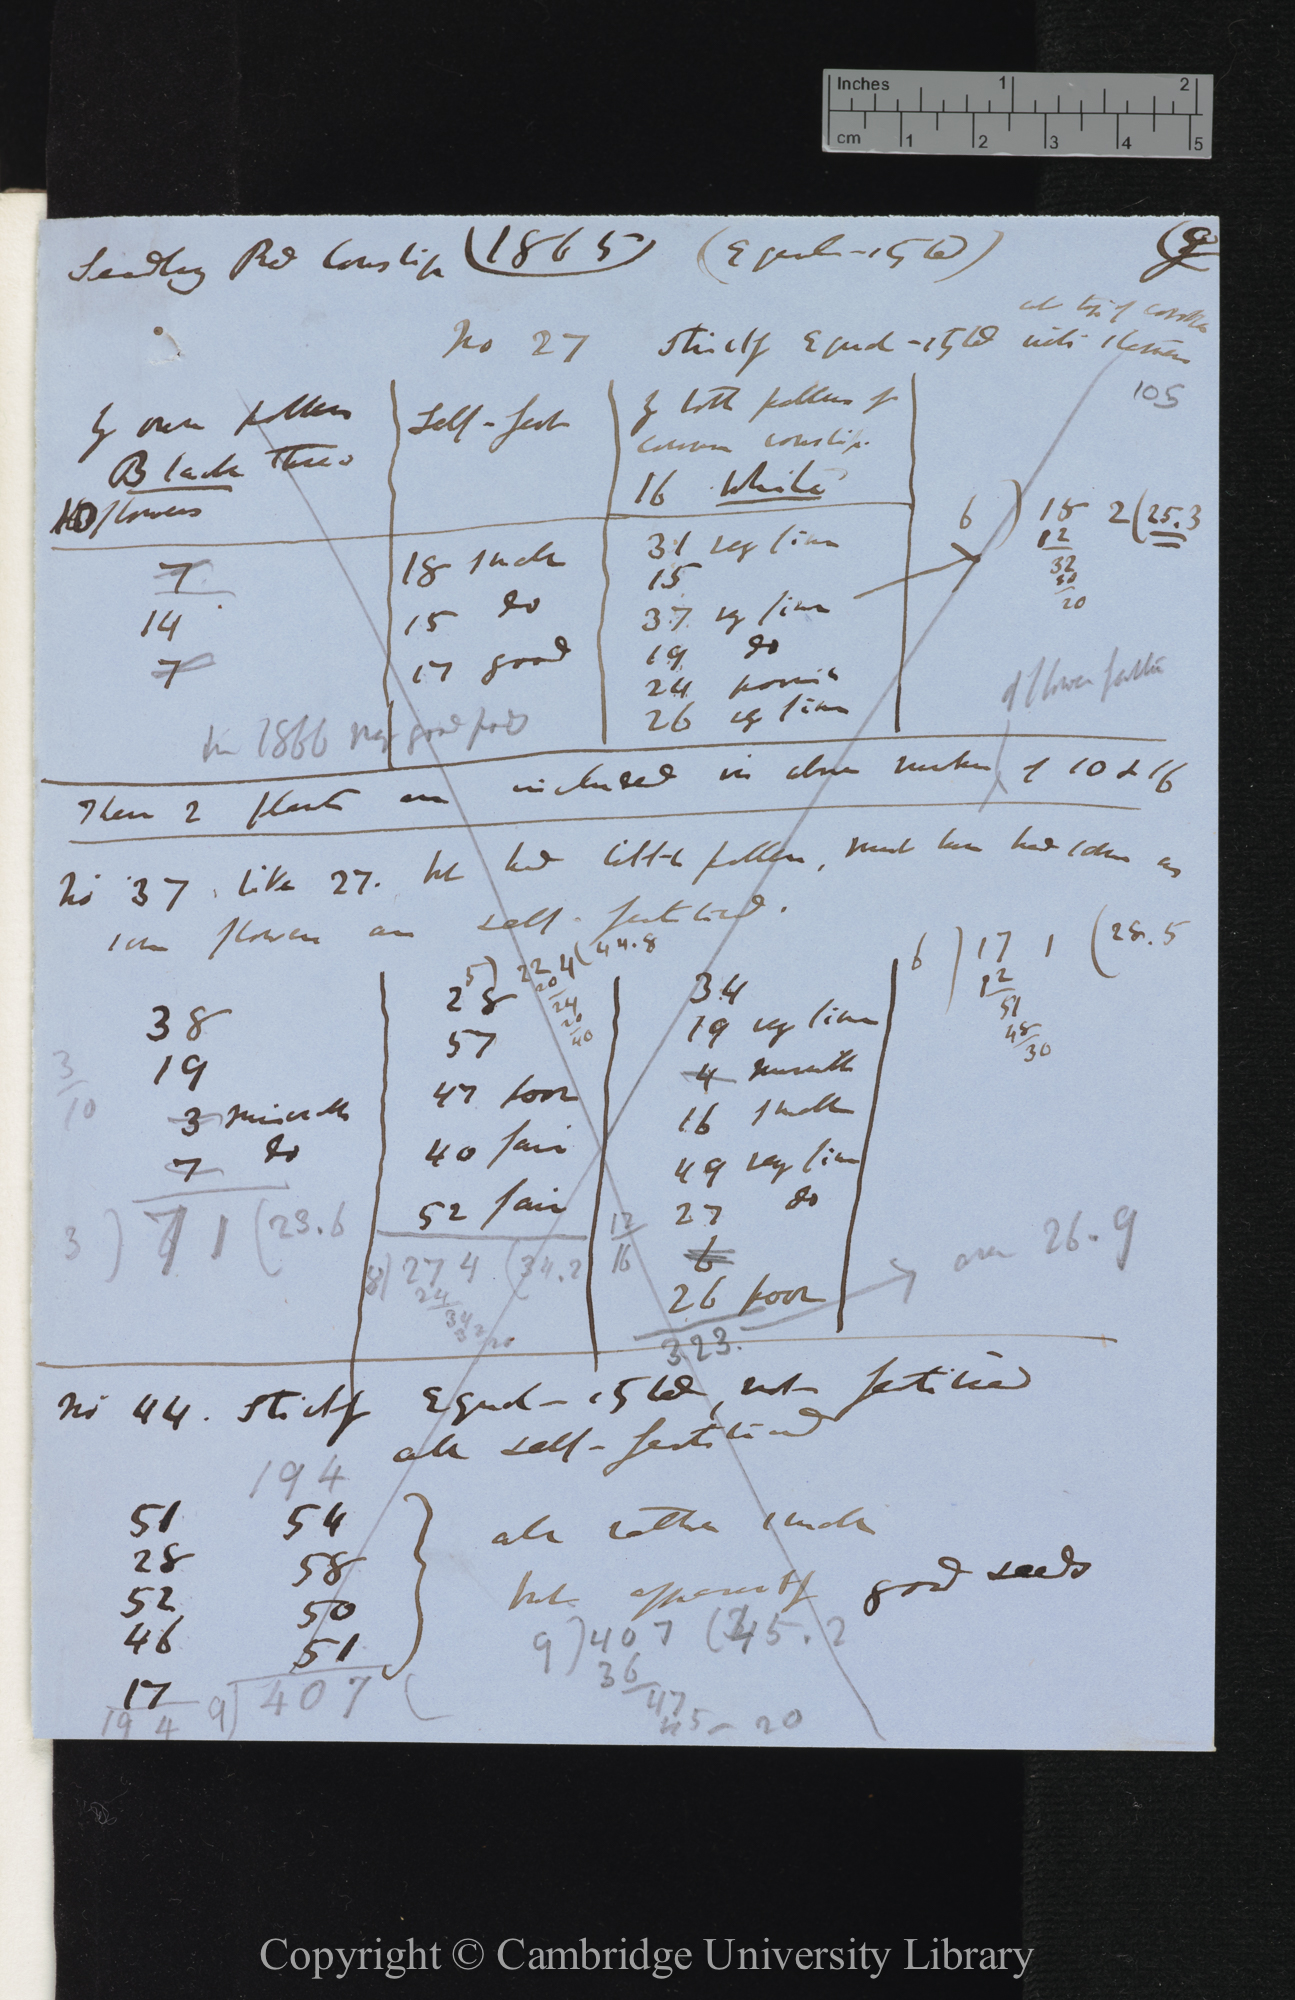 Inches 1 2
cm 1 2 3 4 5
Seedling Red Cowslip (1865) (Equal-styled)
No 27 Strictly Equal-styled with stamens
at top of corolla
105
By own pollen
Black Thread
10 flowers
Self-fert
By both pollens of
common cowslip
16 White
7
14
7
18 small
15 do
17 good
31 very fine
15
37 very fine
19 do
24
26 very fine
6) 18 2 (25.3
12
32
30
20
In 1866 very good pods
of flowers fertilised
These 2 plants are included in above number of 10 & 16
No 37. like 27. but had little pollen, must have had some as
some flowers are self-fertilised.
38
19
3 miserable
7 do
3) 71 (23.6
3/10
5) 22 4 (44.8
20
24
20
40
28
57
47 poor
40 fair
52 fair
8) 274 (34.2
24
34
32
20
34
19 very fine
4 miserable
16 small
49 very fine
27 do
6
26 poor
323.
12/16
6) 17 1 (28.5
12
51
48
30
aver 26.9
No 44. Strictly Equal-styled, not fertilised
all self-fertilised
194
51 54
28 58
52 50
46 51
17
194 9) 407 (
all rather small
but apparently good seeds
9) 407 (45.2
36
47
45
20
Copyright © Cambridge University Library